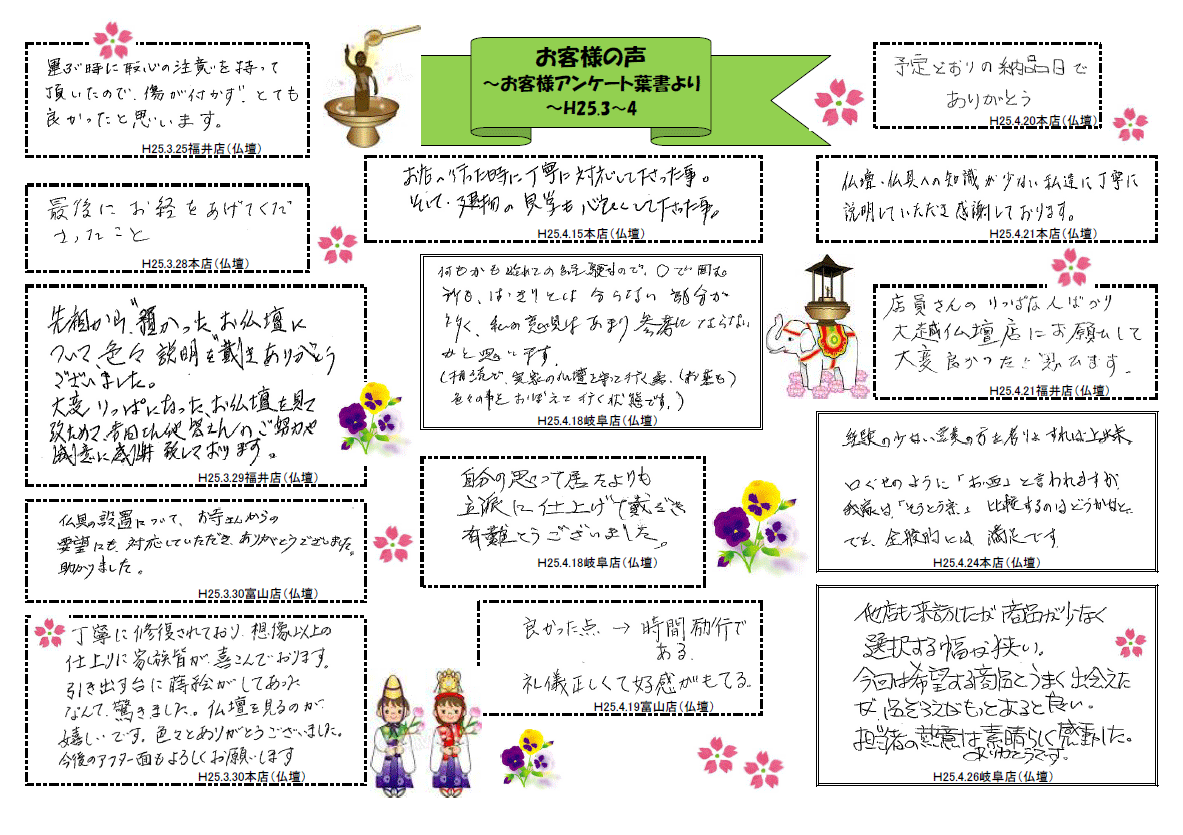 お客様の声
～お客様アンケート葉書より
～H25.3～4
運ぶ時に最心の注意を持って
頂いたので、傷が付かず、とても
良かったと思います。
H25.3.25福井店（仏壇）
最後にお経をあげてくだ
さったこと
H25.3.28本店（仏壇）
先祖から、預かった、お仏壇に
ついて、色々説明を戴きありがとう
ございました。
大変りっぱになった、お仏壇を見て
改ためて、吉田さん他皆さんのご努力や
誠意に感謝致しております。
H25.3.29福井店（仏壇）
仏具の設置について、お寺さんからの
要望にも、対応していただき、ありがとうございました。
助かりました。
H25.3.30富山店（仏壇）
丁寧に修復されており、想像以上の
仕上りに家族皆が喜こんでおります。
引き出す台に蒔絵がしてあった
なんて、驚きました。仏壇を見るのが、
嬉しいです。色々とありがとうございました。
今後のアフター面もよろしくお願いします
H25.3.30本店（仏壇）
お店へ行った時に丁寧に対応して下さった事。
そして、建物の見学も心よくして下さった事。
H25.4.15本店（仏壇）
何もかも始れての経験なので、〇で囲む
所も、はっきりとは分らない部分が
多く、私の意見はあまり参考にはならない
かと思います。
色々の事をおぼえて行く状態です。）
H25.4.18岐阜店（仏壇）
自分の思って居たよりも
立派に仕上げて戴き
有難とうございました。
H25.4.18岐阜店（仏壇）
良かった点 → 時間励行で
ある
礼儀正しくて好感がもてる。
H25.4.19富山店（仏壇）
予定どおりの納品日で
ありがとう
H25.4.20本店（仏壇）
仏壇・仏具への知識が少ない私達に丁寧に
説明していただき感謝しております。
H25.4.21本店（仏壇）
店員さんのりっぱな人ばかり
大越仏壇店にお願いして
大変良かったと思います。
H25.4.21福井店（仏壇）
経験の少ない営業の方を
口ぐせのように「お西」と言われますが、
比較するのはどうかなと、
でも、全般的には満足です。
H25.4.24本店（仏壇）
他店も来訪したが商品が少なく
選択する幅が狭い。
今回は希望する商品とうまく出会えた
が品ぞろえはもっとあると良い。
担当者の熱意は素晴らしく感動した。
ありがとうです。
H25.4.26岐阜店（仏壇）